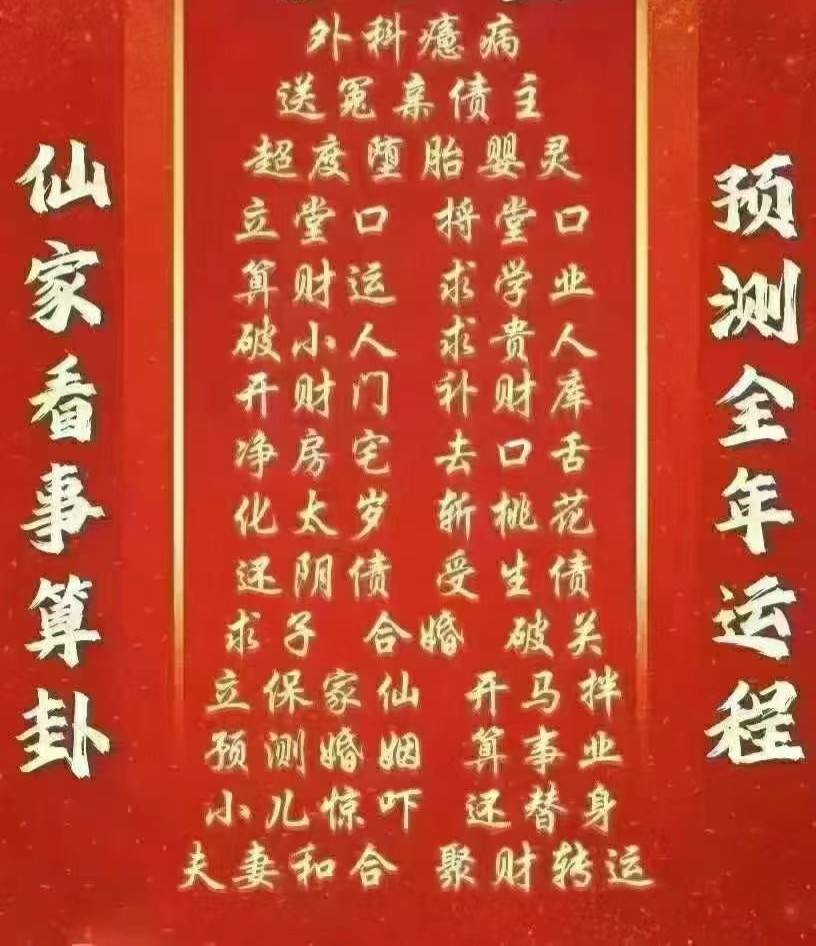 外科癔病
送冤亲债主
超度堕胎婴灵
立堂口 捋堂口
算财运 求学业
破小人 求贵人
开财门 补财库
净房宅 去口舌
化太岁 斩桃花
还阴债 受生债
求子 合婚 破关
立保家仙 开马拌
预测婚姻 算事业
小儿惊吓 还替身
夫妻和合 聚财转运
仙家看事算卦
预测全年运程